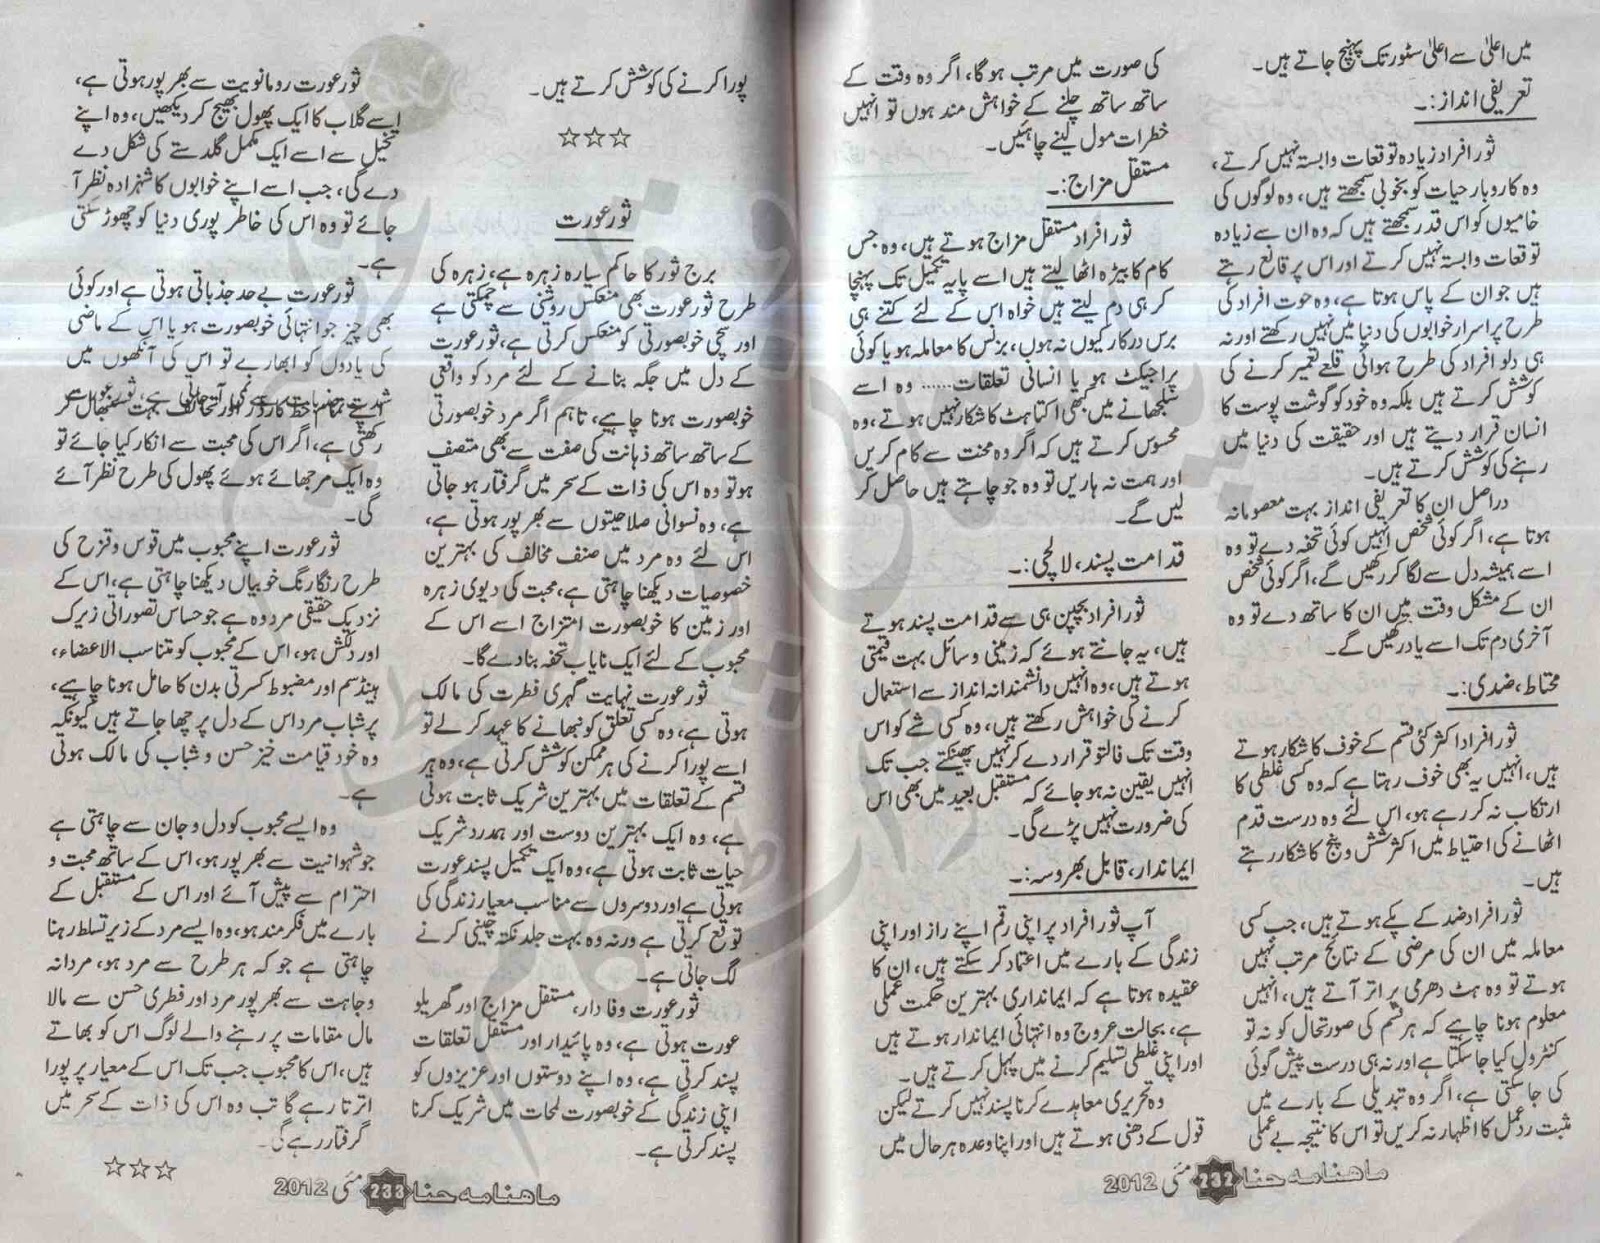 میں اعلیٰ سے اعلیٰ سٹور تک پہنچ جاتے ہیں۔
تعریفی انداز:۔
ثور افراد زیادہ توقعات وابستہ نہیں کرتے،
وہ کاروبار حیات کو بخوبی سمجھتے ہیں، وہ لوگوں کی
خامیوں کو اس قدر سمجھتے ہیں کہ وہ ان سے زیادہ
توقعات وابستہ نہیں کرتے اور اس پر قانع رہتے
ہیں جو ان کے پاس ہوتا ہے، وہ حوت افراد کی
طرح پراسرار خوابوں کی دنیا میں نہیں رکھتے اور نہ
ہی دلو افراد کی طرح ہوائی قلعے تعمیر کرنے کی
کوشش کرتے ہیں بلکہ وہ خود کو گوشت پوست کا
انسان قرار دیتے ہیں اور حقیقت کی دنیا میں
رہنے کی کوشش کرتے ہیں۔
دراصل ان کا تعریفی انداز بہت معصومانہ
ہوتا ہے، اگر کوئی شخص انہیں کوئی تحفہ دے تو وہ
اسے ہمیشہ دل سے لگا کر رکھیں گے، اگر کوئی شخص
ان کے مشکل وقت میں ان کا ساتھ دے تو وہ
آخری دم تک اسے یاد رکھیں گے۔
محتاط، ضدی:۔
ثور افراد اکثر کئی قسم کے خوف کا شکار ہوتے
ہیں، انہیں یہ بھی خوف رہتا ہے کہ وہ کسی غلطی کا
ارتکاب نہ کر رہے ہو، اس لئے وہ درست قدم
اٹھانے کی احتیاط میں اکثر شش و پنج کا شکار رہتے
ہیں۔
ثور افراد ضد کے پکے ہوتے ہیں، جب کسی
معاملہ میں ان کی مرضی کے نتائج مرتب نہیں
ہوتے تو وہ ہٹ دھرمی پر اتر آتے ہیں، انہیں
معلوم ہونا چاہیے کہ ہر قسم کی صورتحال کو نہ تو
کنٹرول کیا جا سکتا ہے اور نہ ہی درست پیش گوئی
کی جا سکتی ہے، اگر وہ تبدیلی کے بارے میں
مثبت ردعمل کا اظہار نہ کریں تو اس کا نتیجہ بے عملی
کی صورت میں مرتب ہوگا، اگر وہ وقت کے
ساتھ ساتھ چلنے کے خواہش مند ہوں تو انہیں
خطرات مول لینے چاہئیں۔
مستقل مزاج:۔
ثور افراد مستقل مزاج ہوتے ہیں، وہ جس
کام کا بیڑہ اٹھا لیتے ہیں اسے پایہ تکمیل تک پہنچا
کر ہی دم لیتے ہیں خواہ اس کے لئے کتنے ہی
برس درکار کیوں نہ ہوں، بزنس کا معاملہ ہو یا کوئی
پراجیکٹ ہو یا انسانی تعلقات...... وہ اسے
سلجھانے میں کبھی اکتاہٹ کا شکار نہیں ہوتے، وہ
محسوس کرتے ہیں کہ اگر وہ محنت سے کام کریں
اور ہمت نہ ہاریں تو وہ جو چاہتے ہیں حاصل کر
لیں گے۔
قدامت پسند، لالچی:۔
ثور افراد بچپن ہی سے قدامت پسند ہوتے
ہیں، یہ جانتے ہوئے کہ زمینی وسائل بہت قیمتی
ہوتے ہیں، وہ انہیں دانشمندانہ انداز سے استعمال
کرنے کی خواہش رکھتے ہیں، وہ کسی شے کو اس
وقت تک فالتو قرار دے کر نہیں پھینکتے جب تک
انہیں یقین نہ ہو جائے کہ مستقبل بعید میں بھی اس
کی ضرورت نہیں پڑے گی۔
ایماندار، قابل بھروسہ:۔
آپ ثور افراد پر اپنی رقم اپنے راز اور اپنی
زندگی کے بارے میں اعتماد کر سکتے ہیں، ان کا
عقیدہ ہوتا ہے کہ ایمانداری بہترین حکمت عملی
ہے، بحالت عروج وہ انتہائی ایماندار ہوتے ہیں
اور اپنی غلطی تسلیم کرنے میں پہل کرتے ہیں۔
وہ تحریری معاہدے کرنا پسند نہیں کرتے لیکن
قول کے دھنی ہوتے ہیں اور اپنا وعدہ ہر حال میں
ماہنامہ حنا 232 مئی 2012
پورا کرنے کی کوشش کرتے ہیں۔
☆☆☆
ثور عورت
برج ثور کا حاکم سیارہ زہرہ ہے، زہرہ کی
طرح ثور عورت بھی منعکس روشنی سے چمکتی ہے
اور سچی خوبصورتی کو منعکس کرتی ہے، ثور عورت
کے دل میں جگہ بنانے کے لئے مرد کو واقعی
خوبصورت ہونا چاہیے، تاہم اگر مرد خوبصورتی
کے ساتھ ساتھ ذہانت کی صفت سے بھی متصف
ہو تو وہ اس کی ذات کے سحر میں گرفتار ہو جاتی
ہے، وہ نسوانی صلاحیتوں سے بھرپور ہوتی ہے،
اس لئے وہ مرد میں صنف مخالف کی بہترین
خصوصیات دیکھنا چاہتی ہے، محبت کی دیوی زہرہ
اور زمین کا خوبصورت امتزاج اسے اس کے
محبوب کے لئے ایک نایاب تحفہ بنا دے گا۔
ثور عورت نہایت گہری فطرت کی مالک
ہوتی ہے، وہ کسی تعلق کو نبھانے کا عہد کر لے تو
اسے پورا کرنے کی ہر ممکن کوشش کرتی ہے، وہ ہر
قسم کے تعلقات میں بہترین شریک ثابت ہوتی
ہے، وہ ایک بہترین دوست اور ہمدرد شریک
حیات ثابت ہوتی ہے، وہ ایک تکمیل پسند عورت
ہوتی ہے اور دوسروں سے مناسب معیار زندگی کی
توقع کرتی ہے ورنہ وہ بہت جلد نکتہ چینی کرنے
لگ جاتی ہے۔
ثور عورت وفادار، مستقل مزاج اور گھریلو
عورت ہوتی ہے، وہ پائیدار اور مستقل تعلقات
پسند کرتی ہے، وہ اپنے دوستوں اور عزیزوں کو
اپنی زندگی کے خوبصورت لمحات میں شریک کرنا
پسند کرتی ہے۔
ثور عورت رومانویت سے بھرپور ہوتی ہے،
اسے گلاب کا ایک پھول بھیج کر دیکھیں، وہ اپنے
تخیل سے اسے ایک مکمل گلدستے کی شکل دے
دے گی، جب اسے اپنے خوابوں کا شہزادہ نظر آ
جائے تو وہ اس کی خاطر پوری دنیا کو چھوڑ سکتی
ہے۔
ثور عورت بے حد جذباتی ہوتی ہے اور کوئی
بھی چیز جو انتہائی خوبصورت ہو یا اس کے ماضی
کی یادوں کو ابھارے تو اس کی آنکھوں میں
اپنے تمام خط کارڈز اور تحائف بہت سنبھال کر
رکھتی ہے، اگر اس کی محبت سے انکار کیا جائے تو
وہ ایک مرجھائے ہوئے پھول کی طرح نظر آئے
گی۔
ثور عورت اپنے محبوب میں قوس و قزح کی
طرح رنگا رنگ خوبیاں دیکھنا چاہتی ہے، اس کے
نزدیک حقیقی مرد وہ ہے جو حساس تصوراتی زیرک
اور دلکش ہو، اس کے محبوب کو متناسب الاعضاء،
ہینڈسم اور مضبوط کسرتی بدن کا حامل ہونا چاہیے،
پر شباب مرد اس کے دل پر چھا جاتے ہیں کیونکہ
وہ خود قیامت خیز حسن و شباب کی مالک ہوتی
ہے۔
وہ ایسے محبوب کو دل و جان سے چاہتی ہے
جو شہوانیت سے بھرپور ہو، اس کے ساتھ محبت و
احترام سے پیش آئے اور اس کے مستقبل کے
بارے میں فکر مند ہو، وہ ایسے مرد کے زیر تسلط رہنا
چاہتی ہے جو کہ ہر طرح سے مرد ہو، مردانہ
وجاہت سے بھرپور مرد اور فطری حسن سے مالا
مال مقامات پر رہنے والے لوگ اس کو بھاتے
ہیں، اس کا محبوب جب تک اس کے معیار پر پورا
اترتا رہے گا تب تک وہ اس کی ذات کے سحر میں
گرفتار رہے گی۔
☆☆☆
ماہنامہ حنا 233 مئی 2012